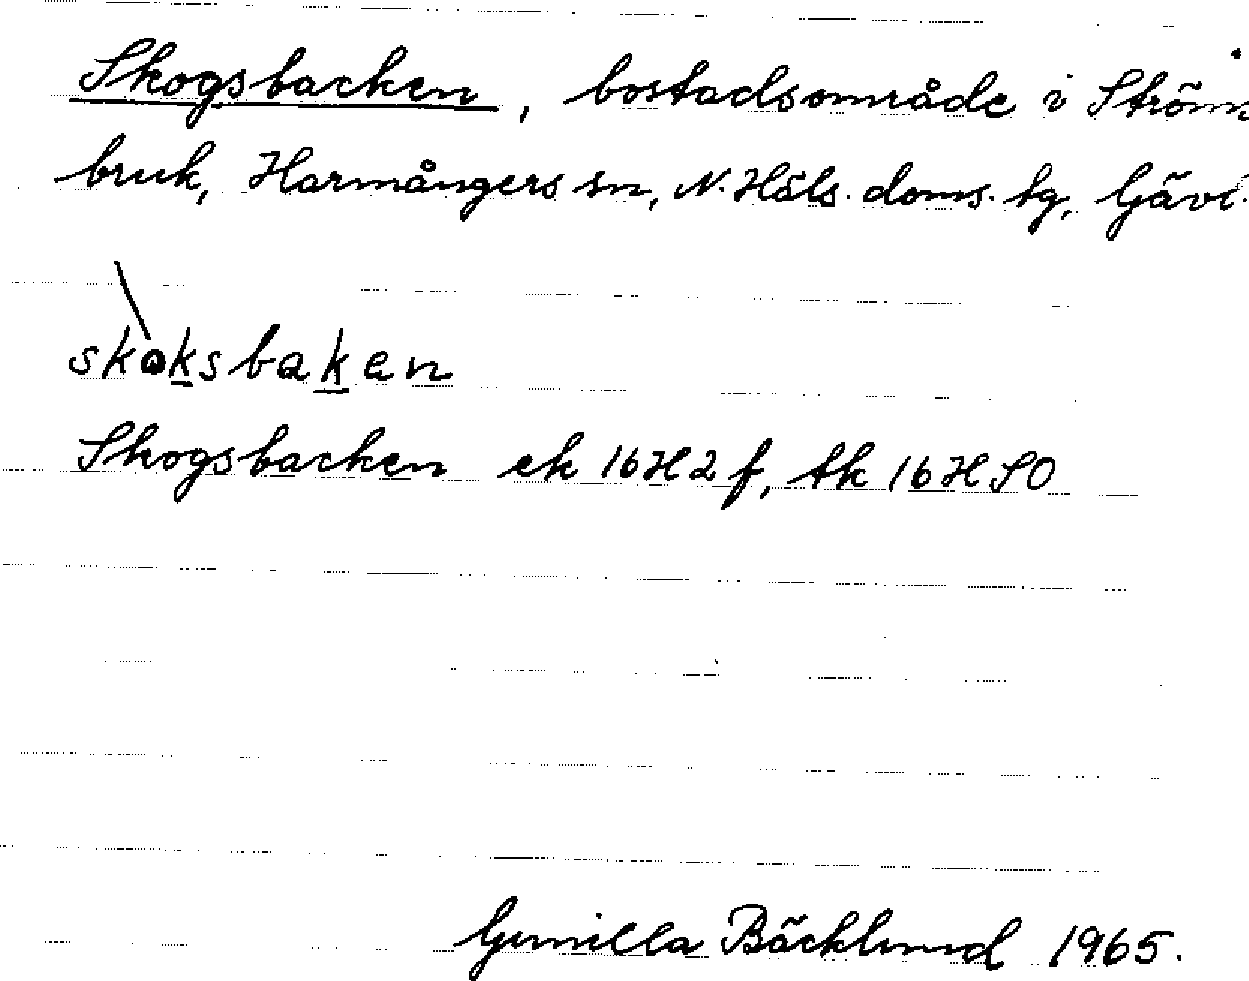 Skogsbacken, bostadsområde i Ströms
bruk, Harmångers sn, N. Häls. doms. tg, Gävl.
skoksbaken
Skogsbacken ek 16H2f, tk 16HSO
Gunilla Bäcklund 1965.